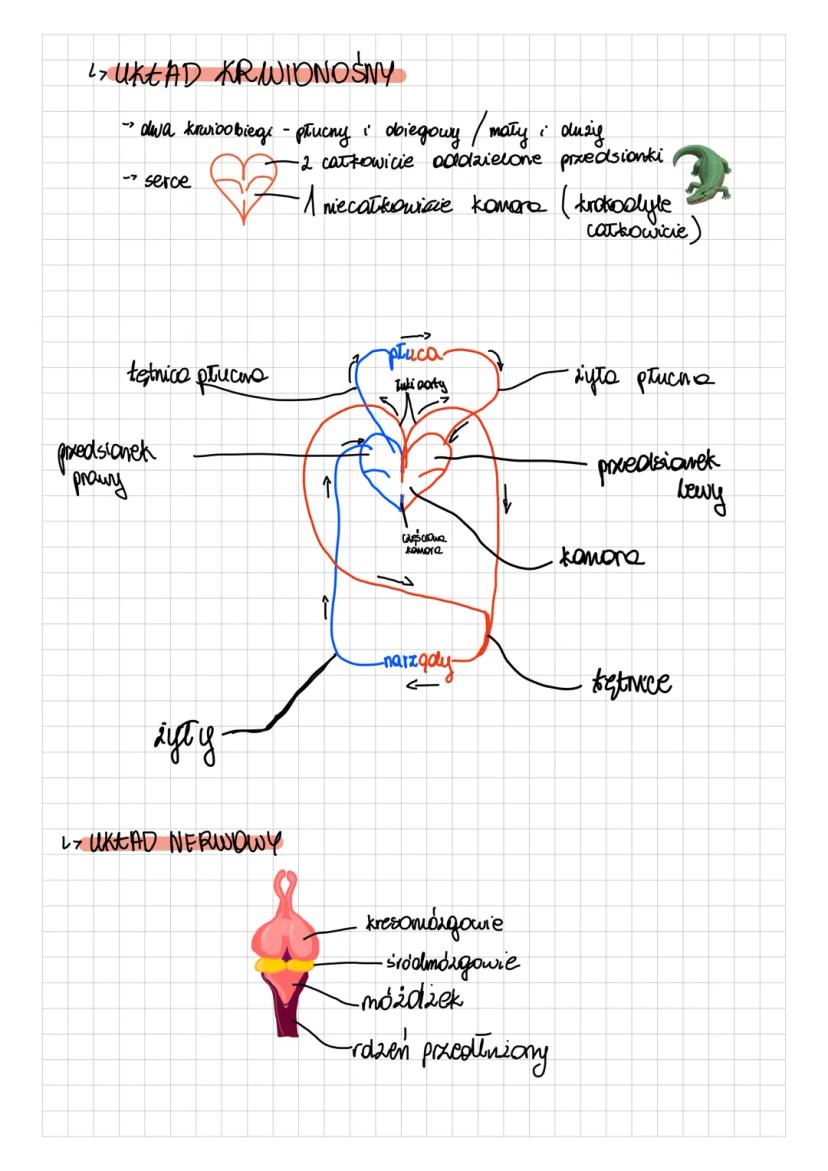 ↳ UKŁAD KRWIONOŚNY
→ dwa krwioobiegi - płucny i obiegowy / mały i duży
2 całkowicie oddzielone przedsionki
→ serce
1 niecałkowicie komora (krokodyle
całkowicie)
płuca
łuki aorty
tętnica płucna
żyła płucna
przedsionek
prawy
przedsionek
lewy
częściowa
komora
komora
narządy
tętnice
żyły
↳ UKŁAD NERWOWY
kresomózgowie
śródmózgowie
móżdżek
rdzeń przedłużony